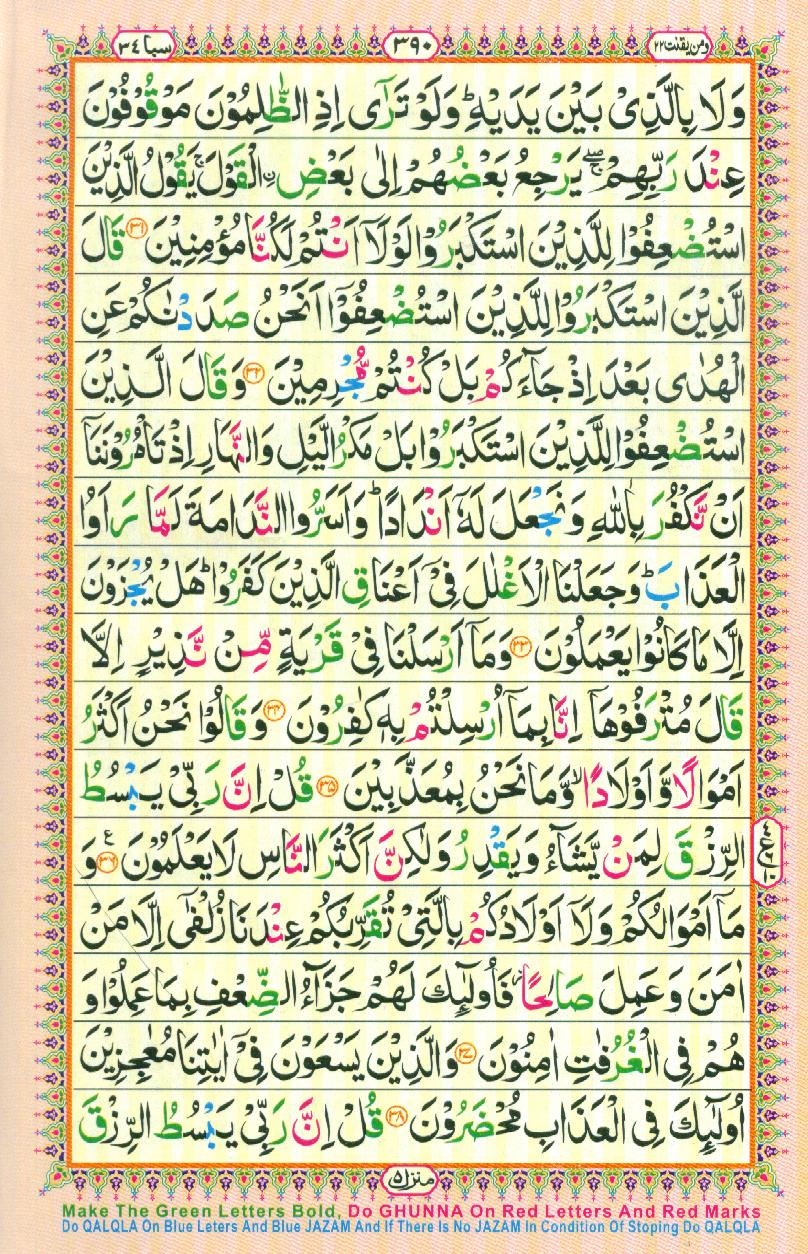 سبا ٣٤ ٣٩٠ ومن يقنت ٢٢
وَلَا بِالَّذِىْ بَيْنَ يَدَيْهِ ؕ وَلَوْ تَرٰٓى اِذِ الظّٰلِمُوْنَ مَوْقُوْفُوْنَ
عِنْدَ رَبِّهِمْ ۖۚ يَرْجِعُ بَعْضُهُمْ اِلٰى بَعْضِ ۨالْقَوْلَ ۚ يَقُوْلُ الَّذِيْنَ
اسْتُضْعِفُوْا لِلَّذِيْنَ اسْتَكْبَرُوْا لَوْلَاۤ اَنْتُمْ لَكُنَّا مُؤْمِنِيْنَ ﴿۳۱﴾ قَالَ
الَّذِيْنَ اسْتَكْبَرُوْا لِلَّذِيْنَ اسْتُضْعِفُوْۤا اَنَحْنُ صَدَدْنٰكُمْ عَنِ
الْهُدٰى بَعْدَ اِذْ جَآءَكُمْ بَلْ كُنْتُمْ مُّجْرِمِيْنَ ﴿۳۲﴾ وَقَالَ الَّذِيْنَ
اسْتُضْعِفُوْا لِلَّذِيْنَ اسْتَكْبَرُوْا بَلْ مَكْرُ الَّيْلِ وَالنَّهَارِ اِذْ تَاْمُرُوْنَنَاۤ
اَنْ نَّكْفُرَ بِاللّٰهِ وَنَجْعَلَ لَهٗۤ اَنْدَادًا ؕ وَاَسَرُّوا النَّدَامَةَ لَمَّا رَاَوُا
الْعَذَابَ ؕ وَجَعَلْنَا الْاَغْلٰلَ فِىْۤ اَعْنَاقِ الَّذِيْنَ كَفَرُوْا ؕ هَلْ يُجْزَوْنَ
اِلَّا مَا كَانُوْا يَعْمَلُوْنَ ﴿۳۳﴾ وَمَاۤ اَرْسَلْنَا فِىْ قَرْيَةٍ مِّنْ نَّذِيْرٍ اِلَّا
قَالَ مُتْرَفُوْهَاۤ اِنَّا بِمَاۤ اُرْسِلْتُمْ بِهٖ كٰفِرُوْنَ ﴿۳۴﴾ وَقَالُوْا نَحْنُ اَكْثَرُ
اَمْوَالًا وَّاَوْلَادًا ۙ وَّمَا نَحْنُ بِمُعَذَّبِيْنَ ﴿۳۵﴾ قُلْ اِنَّ رَبِّىْ يَبْسُطُ
الرِّزْقَ لِمَنْ يَّشَآءُ وَيَقْدِرُ وَلٰكِنَّ اَكْثَرَ النَّاسِ لَا يَعْلَمُوْنَ ﴿۳۶﴾ ع وَ
مَاۤ اَمْوَالُكُمْ وَلَاۤ اَوْلَادُكُمْ بِالَّتِىْ تُقَرِّبُكُمْ عِنْدَنَا زُلْفٰٓى اِلَّا مَنْ
اٰمَنَ وَعَمِلَ صَالِحًا ؗ فَاُولٰٓئِكَ لَهُمْ جَزَآءُ الضِّعْفِ بِمَا عَمِلُوْا وَ
هُمْ فِى الْغُرُفٰتِ اٰمِنُوْنَ ﴿۳۷﴾ وَالَّذِيْنَ يَسْعَوْنَ فِىْۤ اٰيٰتِنَا مُعٰجِزِيْنَ
اُولٰٓئِكَ فِى الْعَذَابِ مُحْضَرُوْنَ ﴿۳۸﴾ قُلْ اِنَّ رَبِّىْ يَبْسُطُ الرِّزْقَ
منزل ٥
Make The Green Letters Bold, Do GHUNNA On Red Letters And Red Marks
Do QALQLA On Blue Leters And Blue JAZAM And If There Is No JAZAM In Condition Of Stoping Do QALQLA